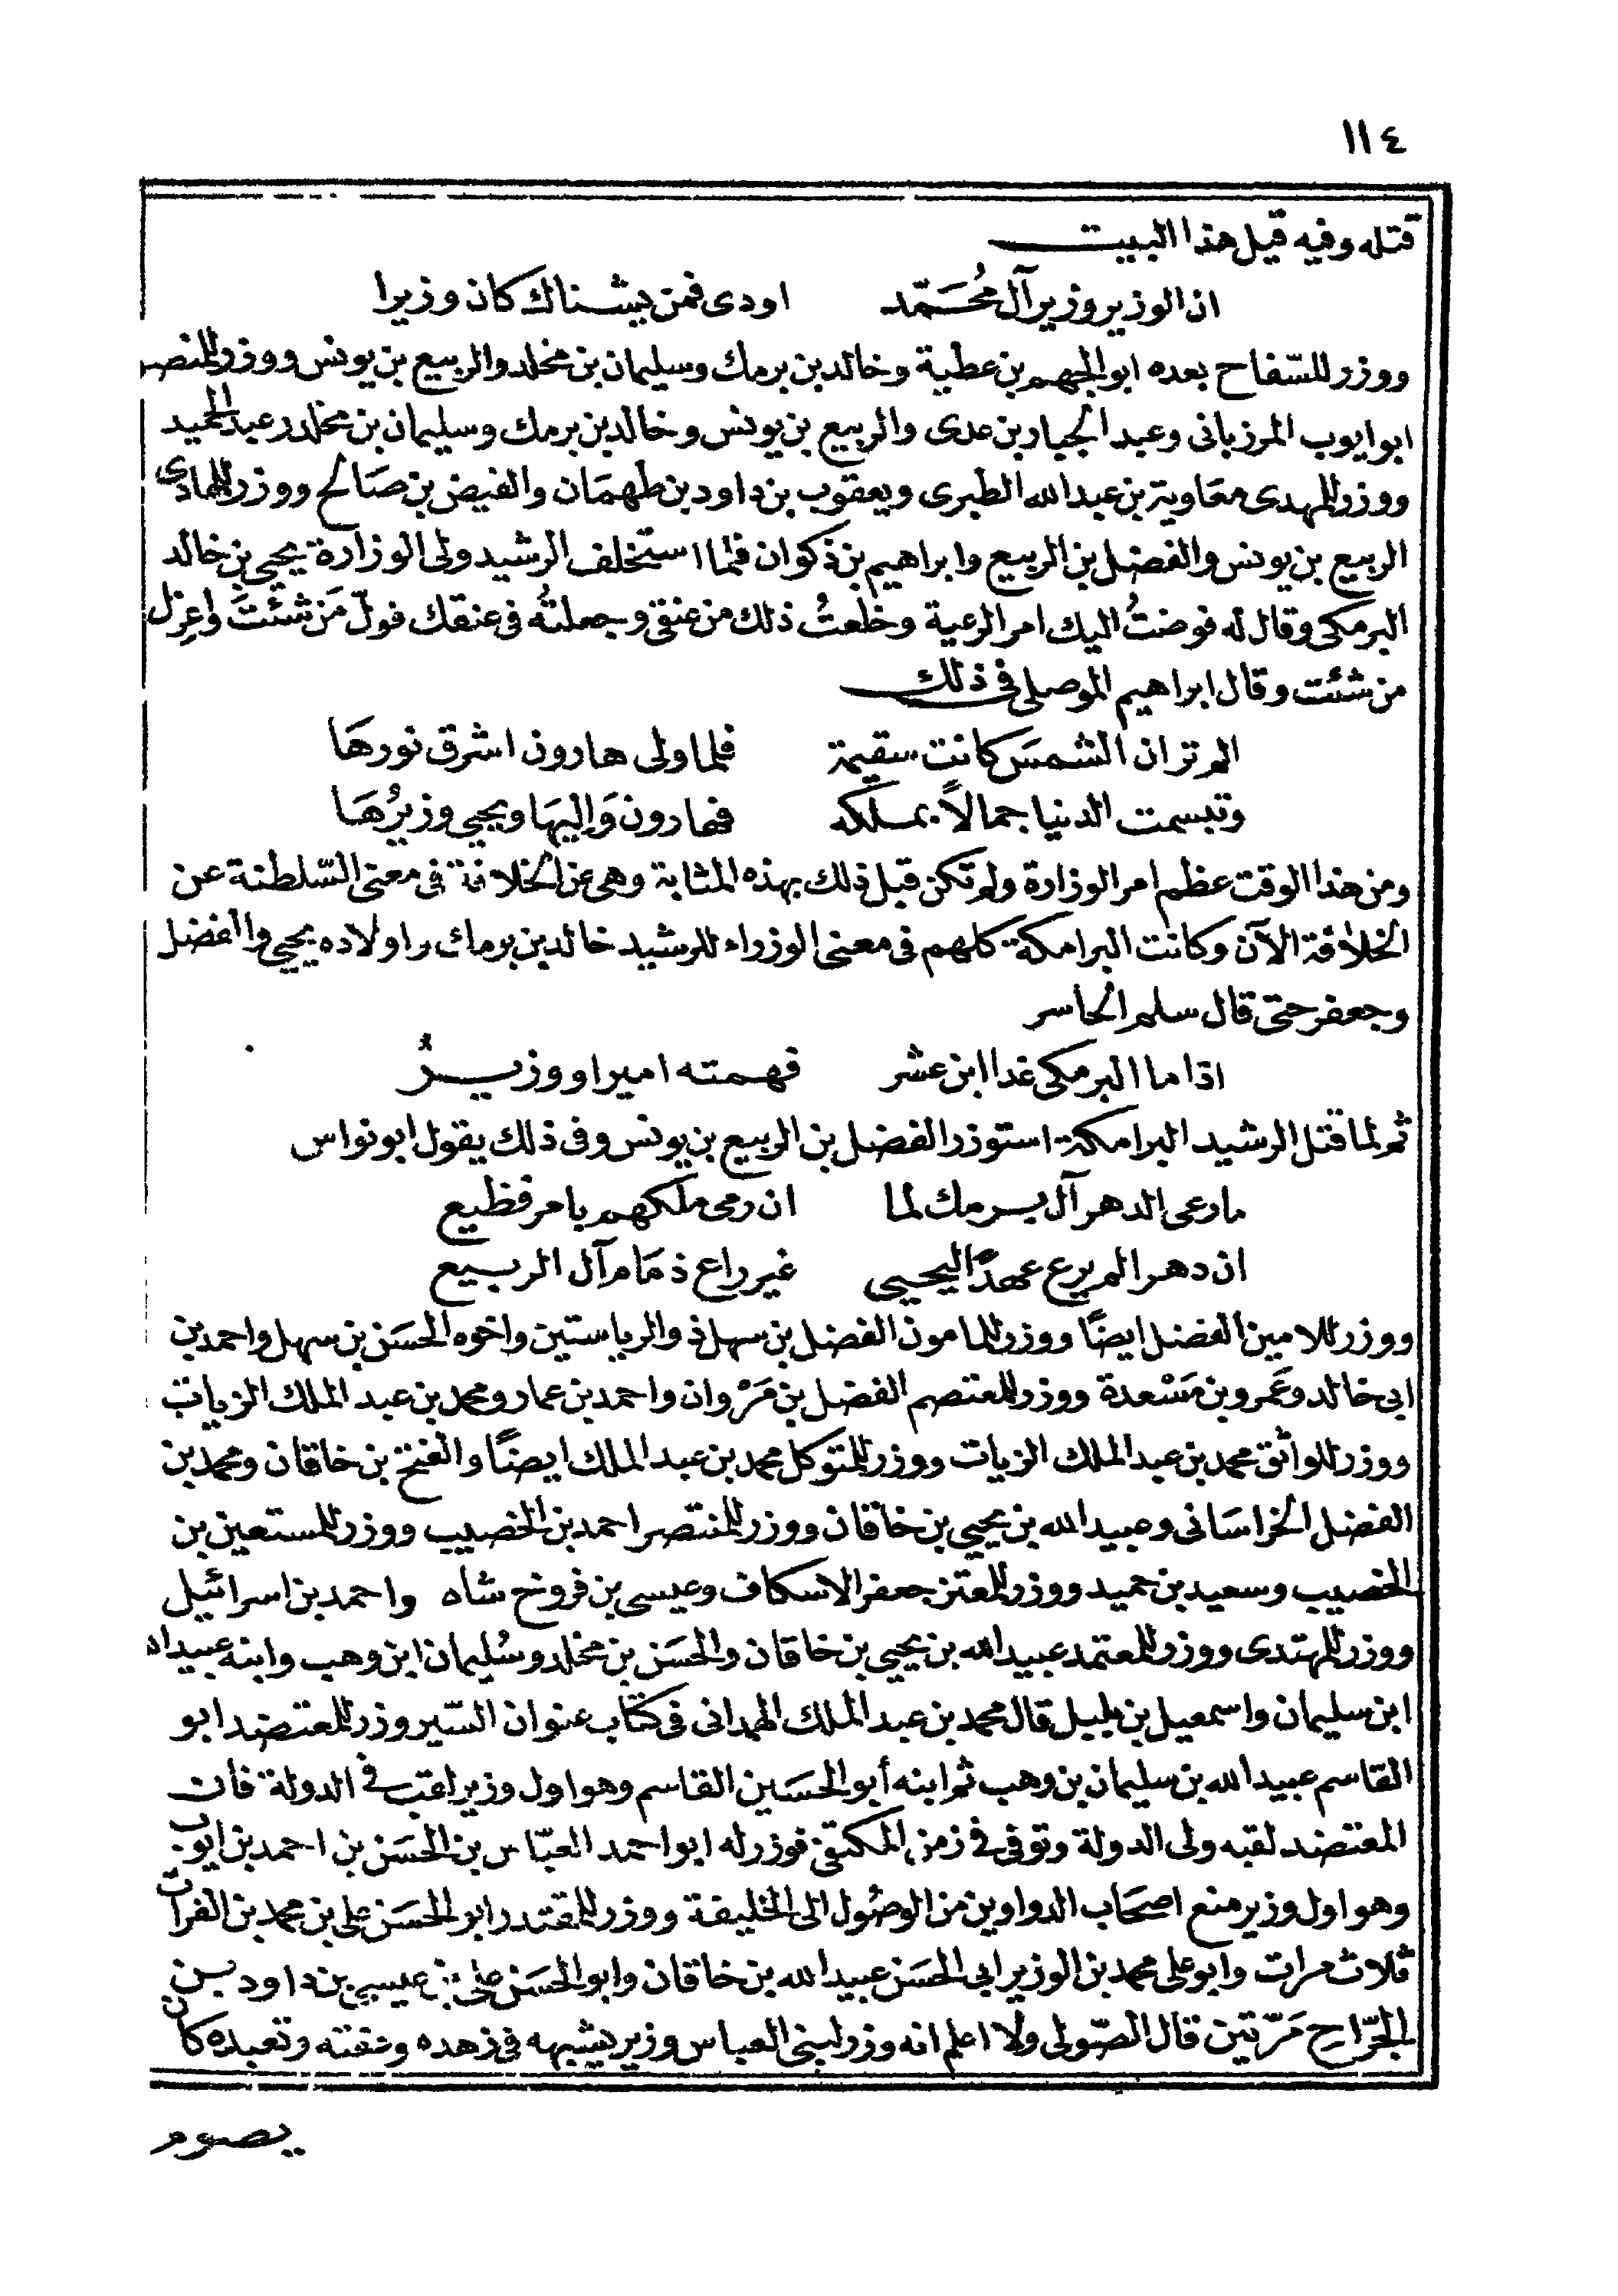 ١١٤
قتله وفيه قيل هذا البيت
ان الوزير وزير آل مُحَمّد اودى فمن يشناك كان وزيرا
ووزر للسّفاح بعده ابوالجهم بن عطية وخالد بن برمك وسليمان بن مخلد والربيع بن يونس ووزر للمنصر
ابوايوب المرزبانى وعبد الجبار بن عدى والربيع بن يونس وخالد بن برمك وسليمان بن مخلدر عبد الحميد
ووزر للمهدى معَاوية بن عبد الله الطبرى ويعقوب بن داود بن طهمَان والفيض بن صَالح ووزر للهادى
الربيع بن يونس والفضل بن الربيع وابراهيم بن ذكوان فلما استخلف الرشيد ولى الوزارة يحيى بن خالد
البرمكى وقال له فوضتُ اليك امر الرعية وخلعتُ ذلك من عنقى وجعلتُه فى عنقك فولّ مَن شئتَ واعزل
من شئت وقال ابراهيم الموصلى فى ذلك
الم تر ان الشمسَ كانت سقيمة فلما ولى هارون اشرق نورهَا
وتبسمت الدنيا جمالاً بملكه فهارون وَاليهَا ويحيى وزيرُهَا
ومن هذا الوقت عظم امر الوزارة ولم تكن قبل ذلك بهذه المثابة وهى عن الخلافة فى معنى السّلطنة عن
الخلافة الآن وكانت البرامكة كلهم فى معنى الوزراء للرشيد خالد بن برمك واولاده يحيى والفضل
وجعفر حتى قال سلم الخاسر
اذا ما البرمكى غدا ابن عشر فهمته امير او وزيـرُ
ثم لما قتل الرشيد البرامكة استوزر الفضل بن الربيع بن يونس وفى ذلك يقول ابونواس
ما رعى الدهر آل بـرمك لما ان رمى ملكهم بامر فظيع
ان دهرا لم يرع عهدًا ليحيى غير راع ذمَام آل الربيع
ووزر للامين الفضل ايضًا ووزر للمامون الفضل بن سهل ذو الرياستين واخوه الحسَن بن سهل واحمد بن
ابى خالد وعَمرو بن مَسْعدة ووزر للمعتصم الفضل بن مَرْوان واحمد بن عمار ومحمد بن عبد الملك الزيات
ووزر للواثق محمد بن عبد الملك الزيات ووزر للمتوكل محمد بن عبد الملك ايضًا والفتح بن خاقان ومحمد بن
الفضل الخراسَانى وعبيد الله بن يحيى بن خاقان ووزر للمنتصر احمد بن الخصيب ووزر للمستعين بن
الخصيب وسعيد بن حميد ووزر للمعتز جعفر الاسكاف وعيسى بن فروخ شاه واحمد بن اسرائيل
ووزر للمهتدى ووزر للمعتمد عبيد الله بن يحيى بن خاقان والحسَن بن مخلد وسُليمان ابن وهب وابنه عبيد الله
ابن سليمان واسمعيل بن بلبل قال محمد بن عبد الملك الهمدانى فى كتاب عنوان السّير وزر للمعتضد ابو
القاسم عبيد الله بن سليمان بن وهب ثم ابنه أبو الحسَين القاسم وهو اول وزير لقب فى الدولة فان
المعتضد لقبه ولى الدولة وتوفى فى زمن المكتفى فوزر له ابو احمد العبّاس بن الحسَن بن احمد بن ايوب
وهو اول وزير منع اصحَاب الدواوين من الوصُول الى الخليفة ووزر للمقتدر ابو الحسَن على بن محمد بن الفرات
ثلاث مرات وابو على محمد بن الوزير ابى الحسَن عبيد الله بن خاقان وابو الحسَن على بن عيسى بن داود بـن
الجرّاح مَرّتين قال الصّولى ولا اعلم انه وزر لبنى العباس وزير يشبهه فى زهده وعفته وتعبده كان
يصوم